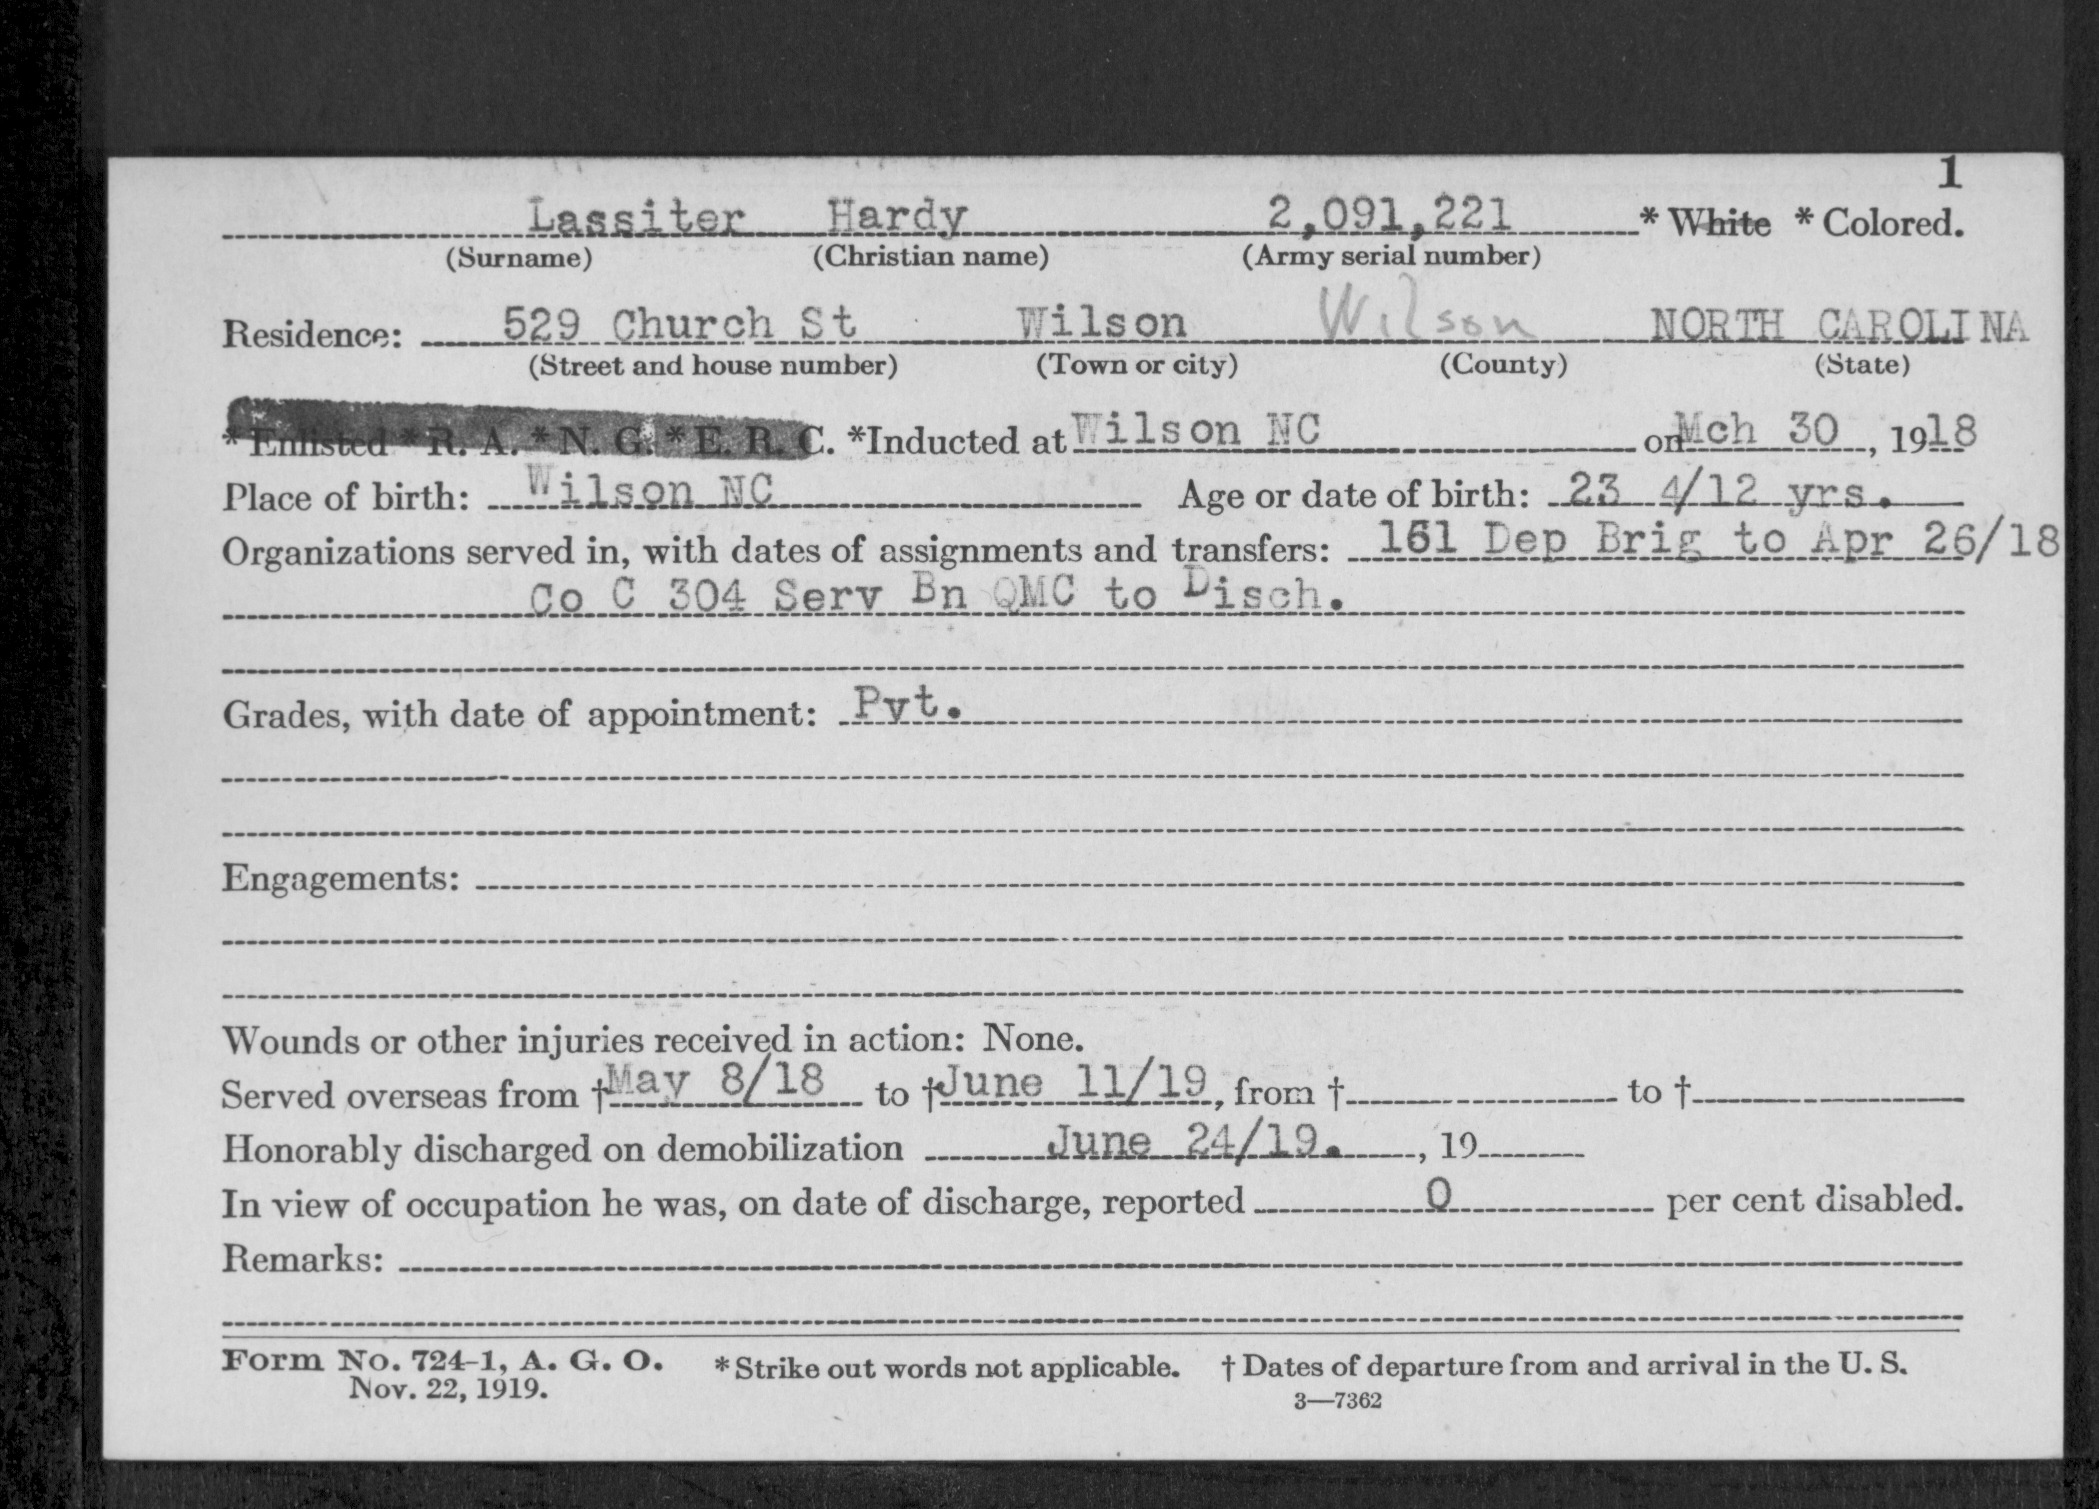 1
Lassiter Hardy 2,091,221 * White * Colored.
(Surname) (Christian name) (Army serial number)
Residence: 529 Church St Wilson Wilson NORTH CAROLINA
(Street and house number) (Town or city) (County) (State)
* Enlisted * R. A. * N. G. * E. R. C. *Inducted at Wilson NC on Mch 30, 1918
Place of birth: Wilson NC Age or date of birth: 23 4/12 yrs.
Organizations served in, with dates of assignments and transfers: 161 Dep Brig to Apr 26/18
Co C 304 Serv Bn QMC to Disch.
Grades, with date of appointment: Pvt.
Engagements:
Wounds or other injuries received in action: None.
Served overseas from † May 8/18 to † June 11/19, from † to †
Honorably discharged on demobilization June 24/19. , 19
In view of occupation he was, on date of discharge, reported 0 per cent disabled.
Remarks:
Form No. 724-1, A. G. O. * Strike out words not applicable. † Dates of departure from and arrival in the U. S.
Nov. 22, 1919.
3—7362